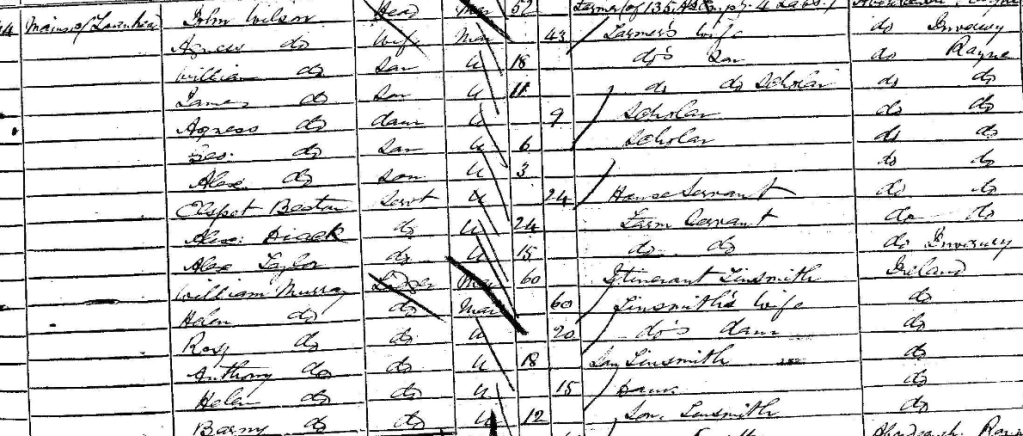 John Wilson Head Mar 52 Farmer of 135 Acs Emp. 4 Labs.
Agness do Wife Mar 43 Farmer's Wife do Inverury
William do Son U 18 do's Son do Rayne
James do Son U 11 do do Scholar do do
Agness do daur U 9 Scholar do do
Geo. do Son U 6 Scholar do do
Alex do Son U 3 do do
Elspet Beaton Servt U 24 House Servant do do
Alex: Diack do U 24 Farm Servant do do
Alex Taylor do U 15 do do do Inverury
William Murray Lodger Mar 60 Itinerant Tinsmith Ireland
Helen do do Mar 60 Tinsmith's Wife do
Rosy do do U 20 do's daur do
Anthony do do U 18 Son Tinsmith do
Helen do do U 15 Daur do
Barny do do U 12 Son, Tinsmith do